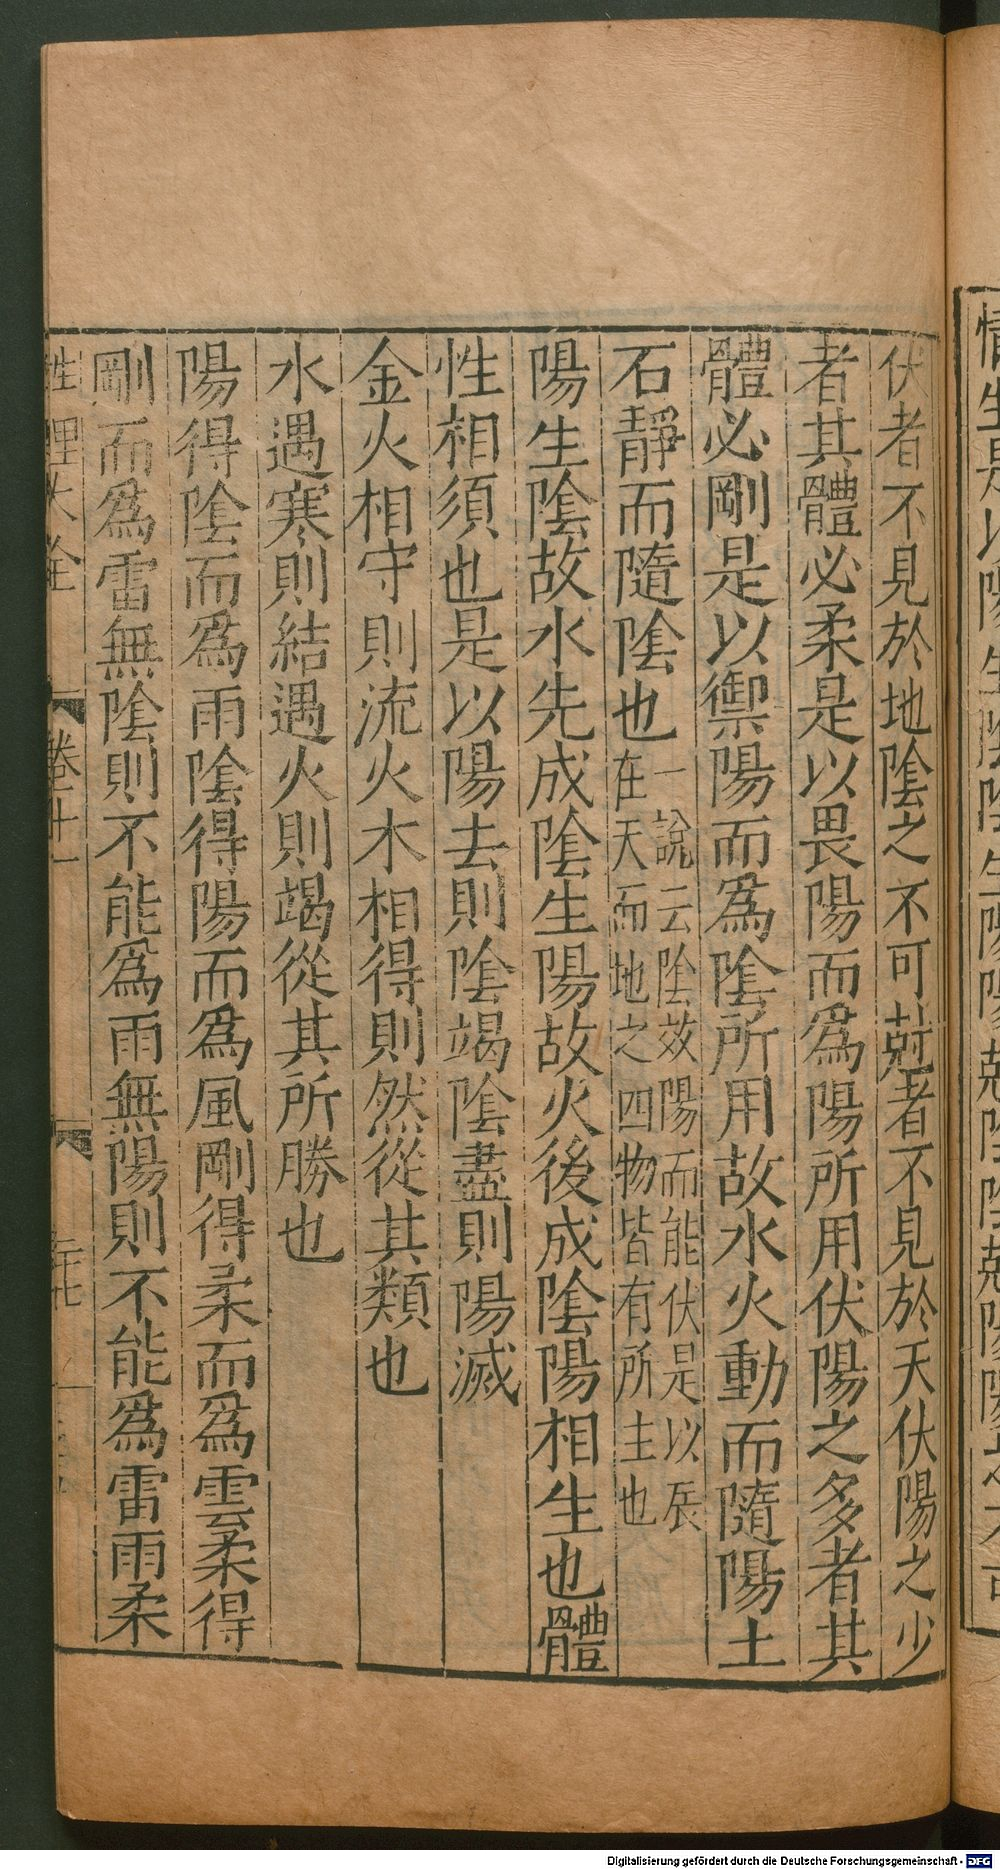 伏者不見於地陰之不可尅者不見於天伏陽之少
者其體必柔是以畏陽而為陽所用伏陽之多者其
體必剛是以禦陽而為陰所用故水火動而隨陽土
石靜而隨陰也
一說云陰效陽而能伏是以辰
在天而地之四物皆有所主也
陽生陰故水先成陰生陽故火後成陰陽相生也體
性相須也是以陽去則陰竭陰盡則陽滅
金火相守則流火木相得則然從其類也
水遇寒則結遇火則竭從其所勝也
陽得陰而為雨陰得陽而為風剛得柔而為雲柔得
剛而為雷無陰則不能為雨無陽則不能為雷雨柔
性理大全 卷十一
Digitalisierung gefördert durch die Deutsche Forschungsgemeinschaft - DFG